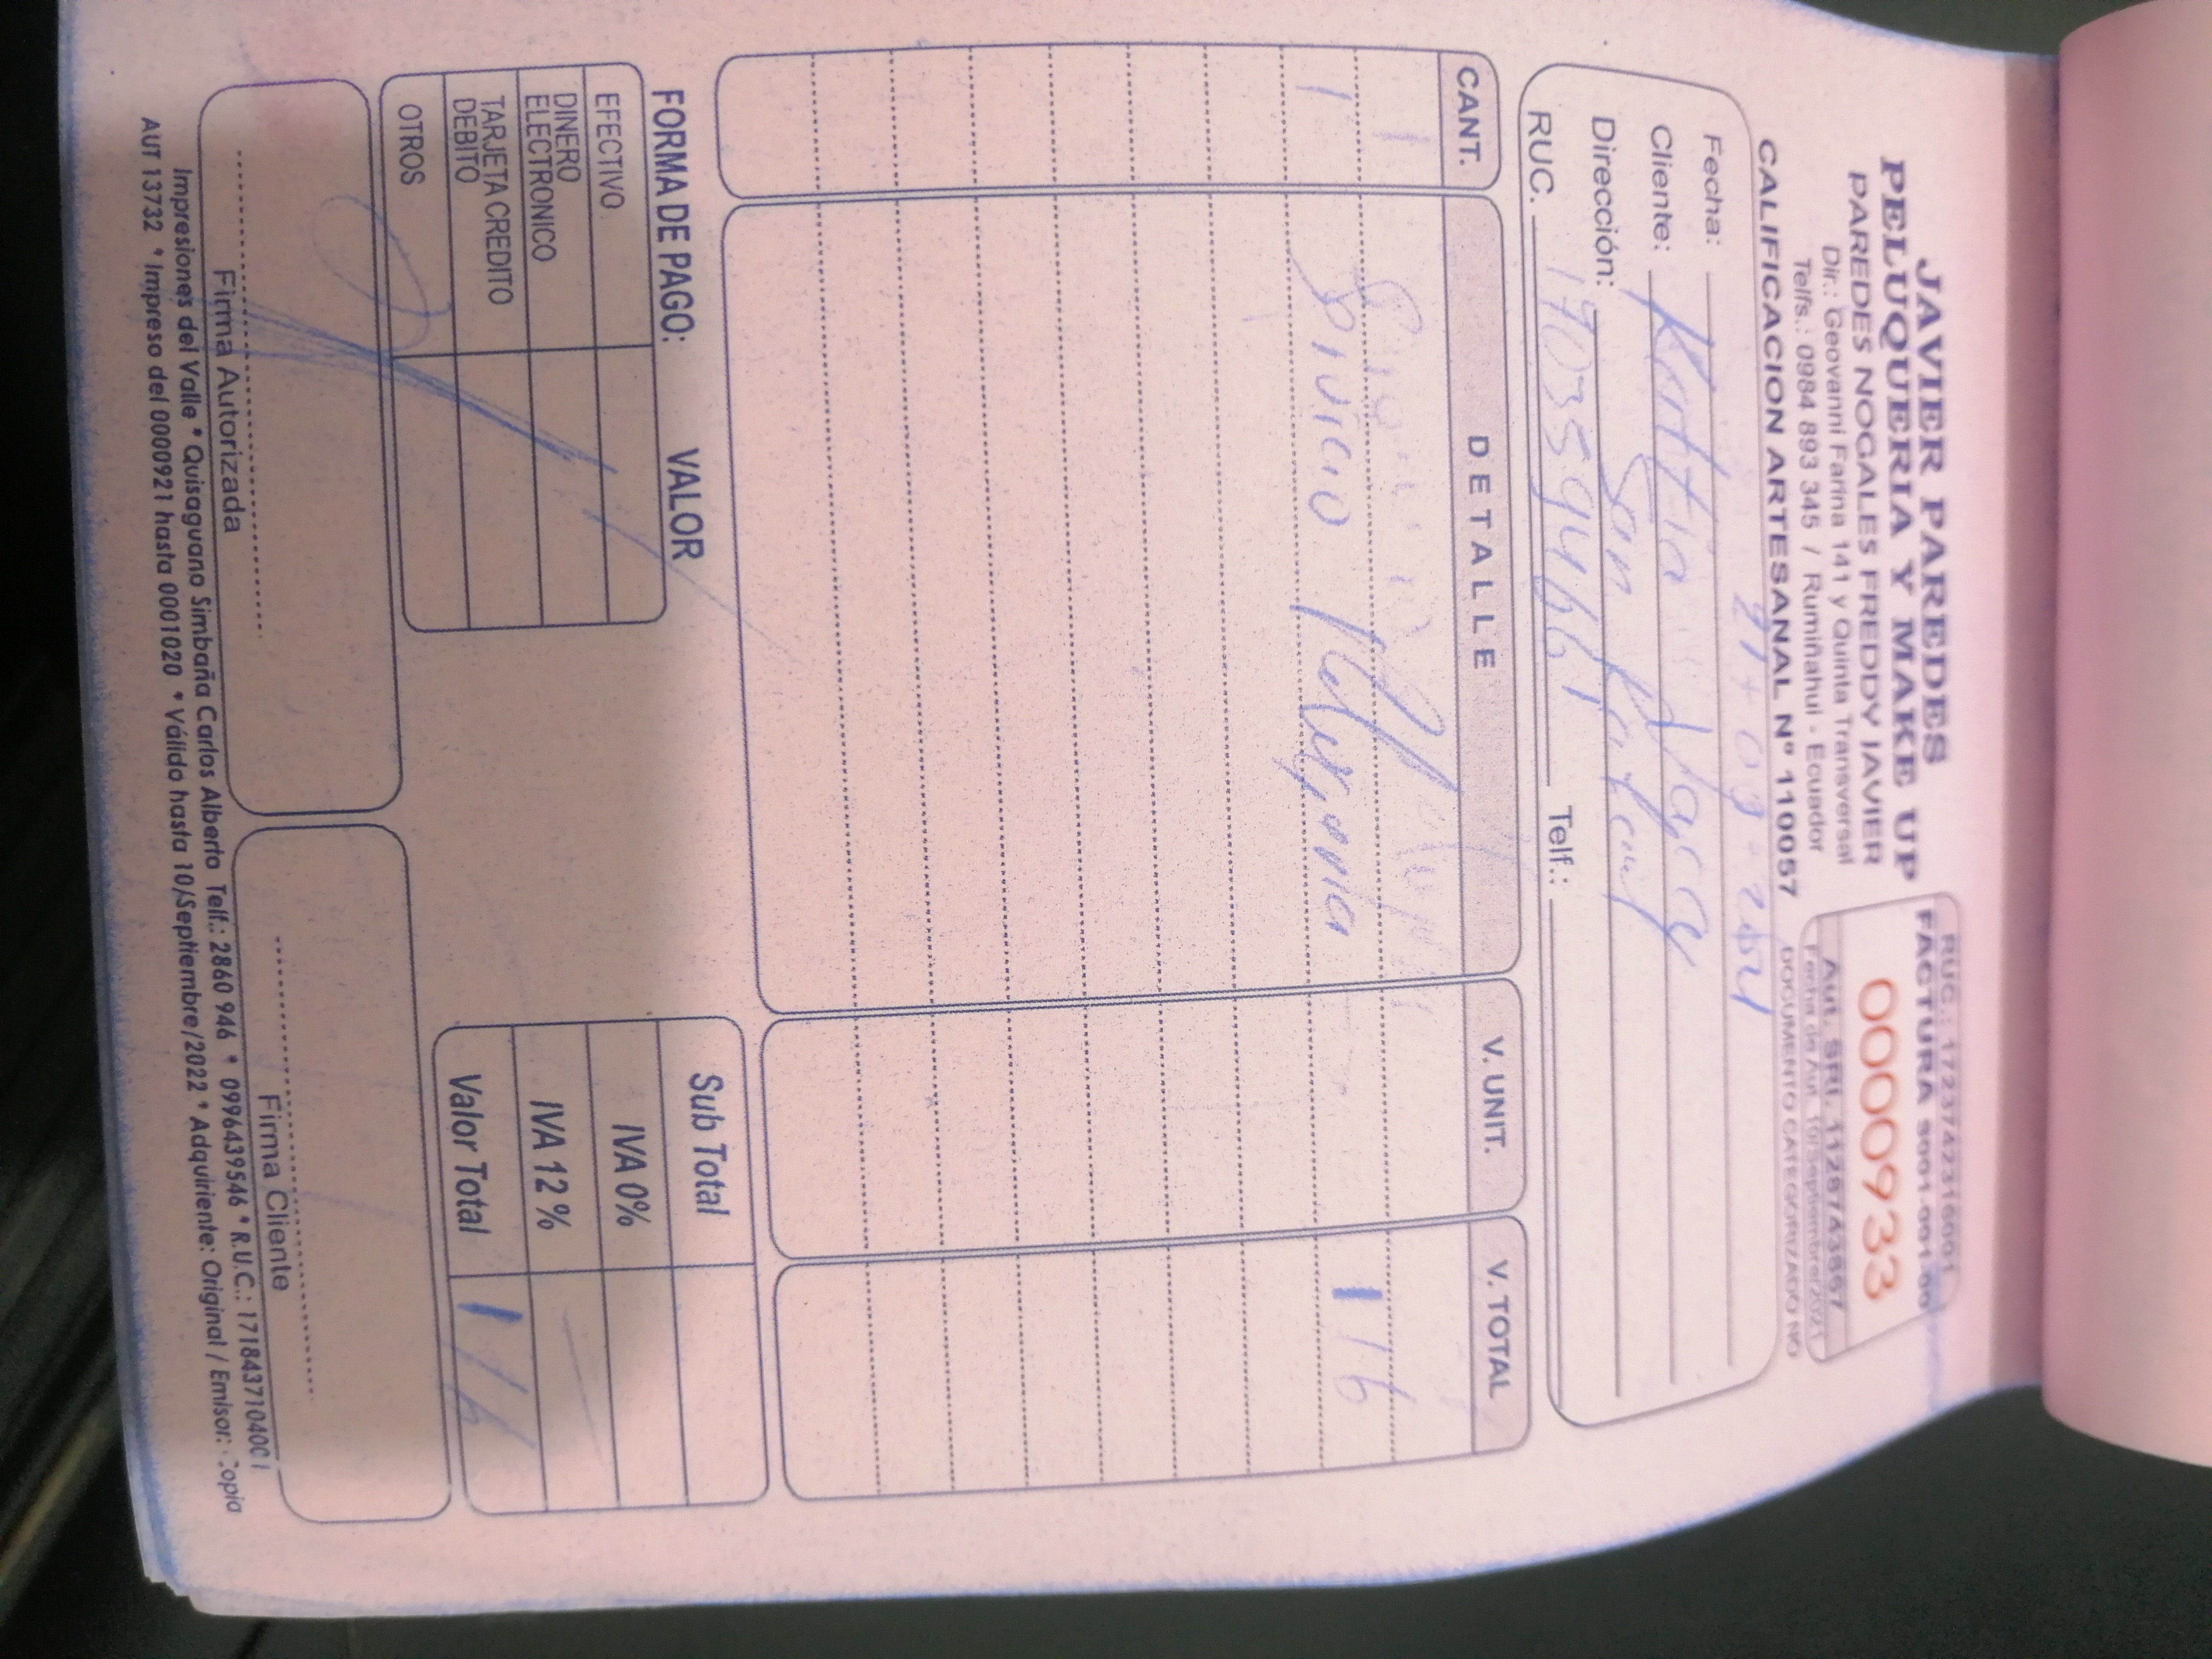 JAVIER PAREDES
PELUQUERIA Y MAKE UP
PAREDES NOGALES FREDDY JAVIER
Dir.: Geovanni Farina 141 y Quinta Transversal
Telfs.: 0984 893 345 / Rumiñahui - Ecuador
CALIFICACION ARTESANAL Nº 110057
RUC.: 1723742316001
FACTURA S001-001-00
0000933
Aut. SRI. 1128743557
Fecha de Aut. 10/Septiembre/2021
DOCUMENTO CATEGORIZADO NO
Fecha:
Cliente:
Dirección: San Rafael
RUC. Telf.:
CANT. DETALLE V. UNIT. V. TOTAL
1 16
FORMA DE PAGO: VALOR
EFECTIVO
DINERO ELECTRONICO
TARJETA CREDITO DEBITO
OTROS
Sub Total
IVA 0%
IVA 12 %
Valor Total 16
Firma Autorizada
Firma Cliente
Impresiones del Valle * Quisaguano Simbaña Carlos Alberto Telf.: 2860 946 * 0996439546 * R.U.C.: 1718437104001
AUT 13732 * Impreso del 0000921 hasta 0001020 * Válido hasta 10/Septiembre/2022 * Adquiriente: Original / Emisor: Copia